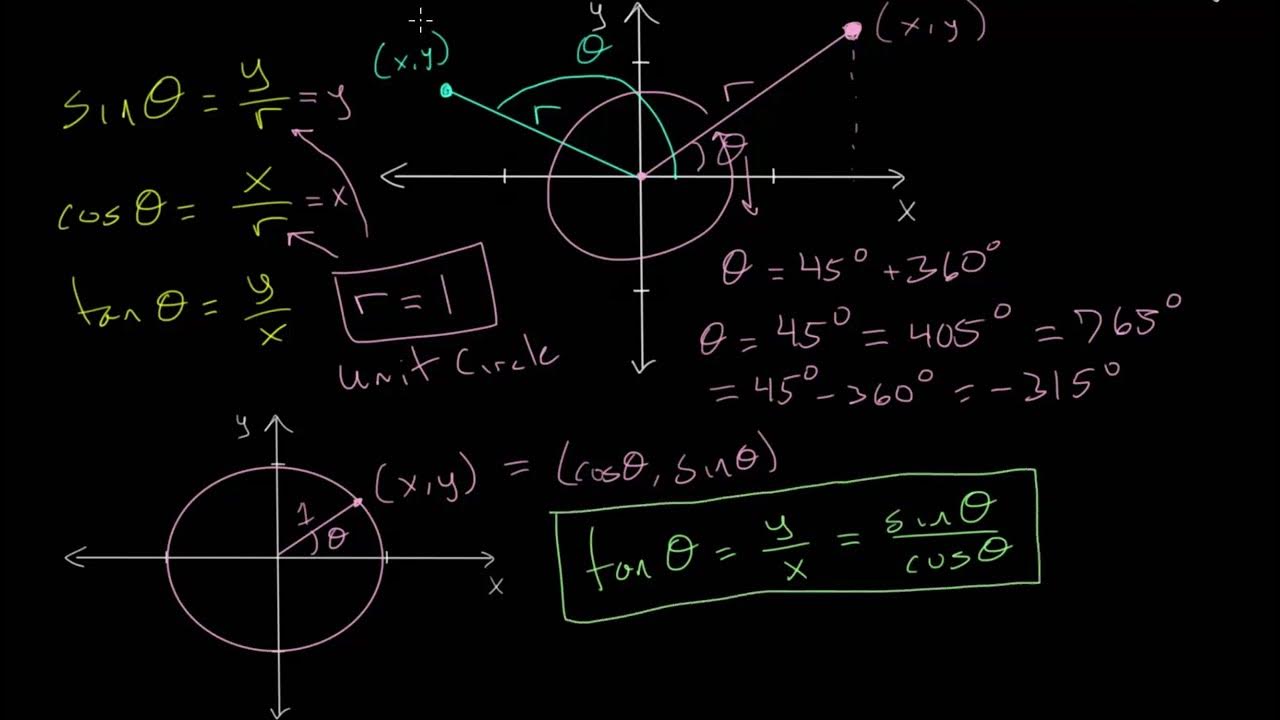 sinθ = y/r = y
cosθ = x/r = x
tanθ = y/x
r = 1
unit circle
y
(x,y)
θ
r
(x,y)
r
θ
x
θ = 45° + 360°
θ = 45° = 405° = 765°
= 45° - 360° = -315°
y
(x,y) = (cosθ, sinθ)
1
θ
x
tanθ = y/x = sinθ/cosθ